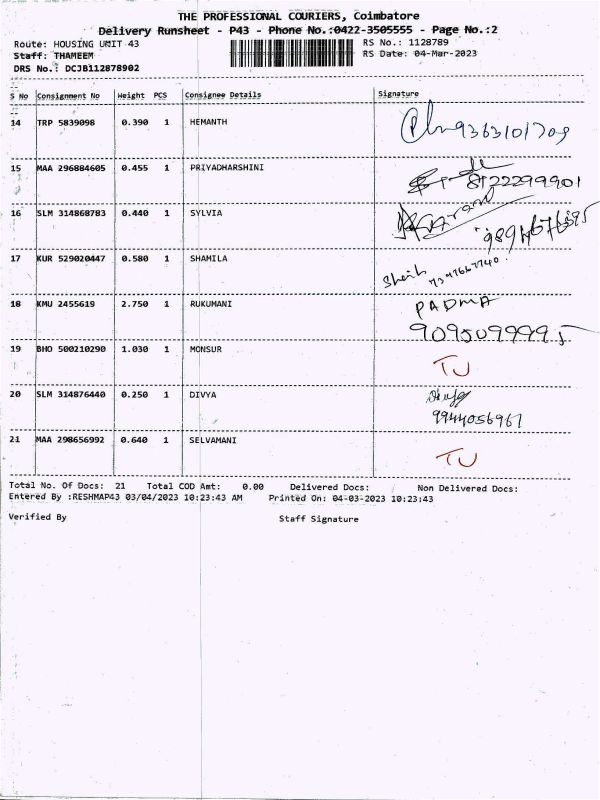 THE PROFESSIONAL COURIERS, Coimbatore
Delivery Runsheet - P43 - Phone No.:0422-3505555 - Page No.:2
Route: HOUSING UNIT 43 RS No.: 1128789
Staff: THAMEEM RS Date: 04-Mar-2023
DRS No.: DCJB112878902
S No Consignment No Weight PCS Consignee Details Signature
14 TRP 5839098 0.390 1 HEMANTH 9363101709
15 MAA 296884605 0.455 1 PRIYADHARSHINI 8122299901
16 SLM 314868783 0.440 1 SYLVIA
17 KUR 529020447 0.580 1 SHAMILA
18 KMU 2455619 2.750 1 RUKUMANI PADMA
9095099995
19 BHO 500210290 1.030 1 MONSUR TU
20 SLM 314876440 0.250 1 DIVYA
9944056967
21 MAA 298656992 0.640 1 SELVAMANI TU
Total No. Of Docs: 21 Total COD Amt: 0.00 Delivered Docs: Non Delivered Docs:
Entered By :RESHMAP43 03/04/2023 10:23:43 AM Printed On: 04-03-2023 10:23:43
Verified By Staff Signature